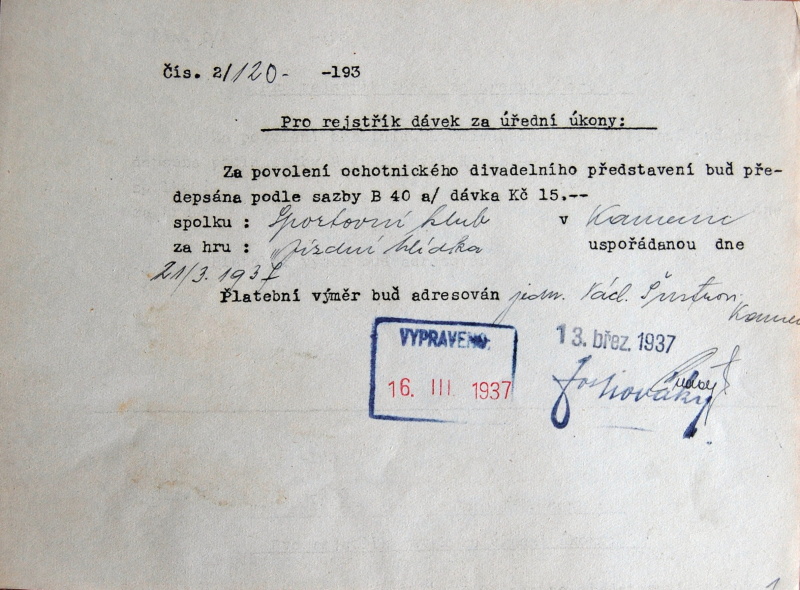 Čís. 2/120- -193
Pro rejstřík dávek za úřední úkony:
Za povolení ochotnického divadelního představení buď pře-
depsána podle sazby B 40 a/ dávka Kč 15.--
spolku : Sportovní klub v Kamenic
za hru : „Jízdní hlídka uspořádanou dne
21/3. 1937
Platební výměr buď adresován jedn. Václ.
VYPRAVENO.
16. III. 1937
13. břez. 1937